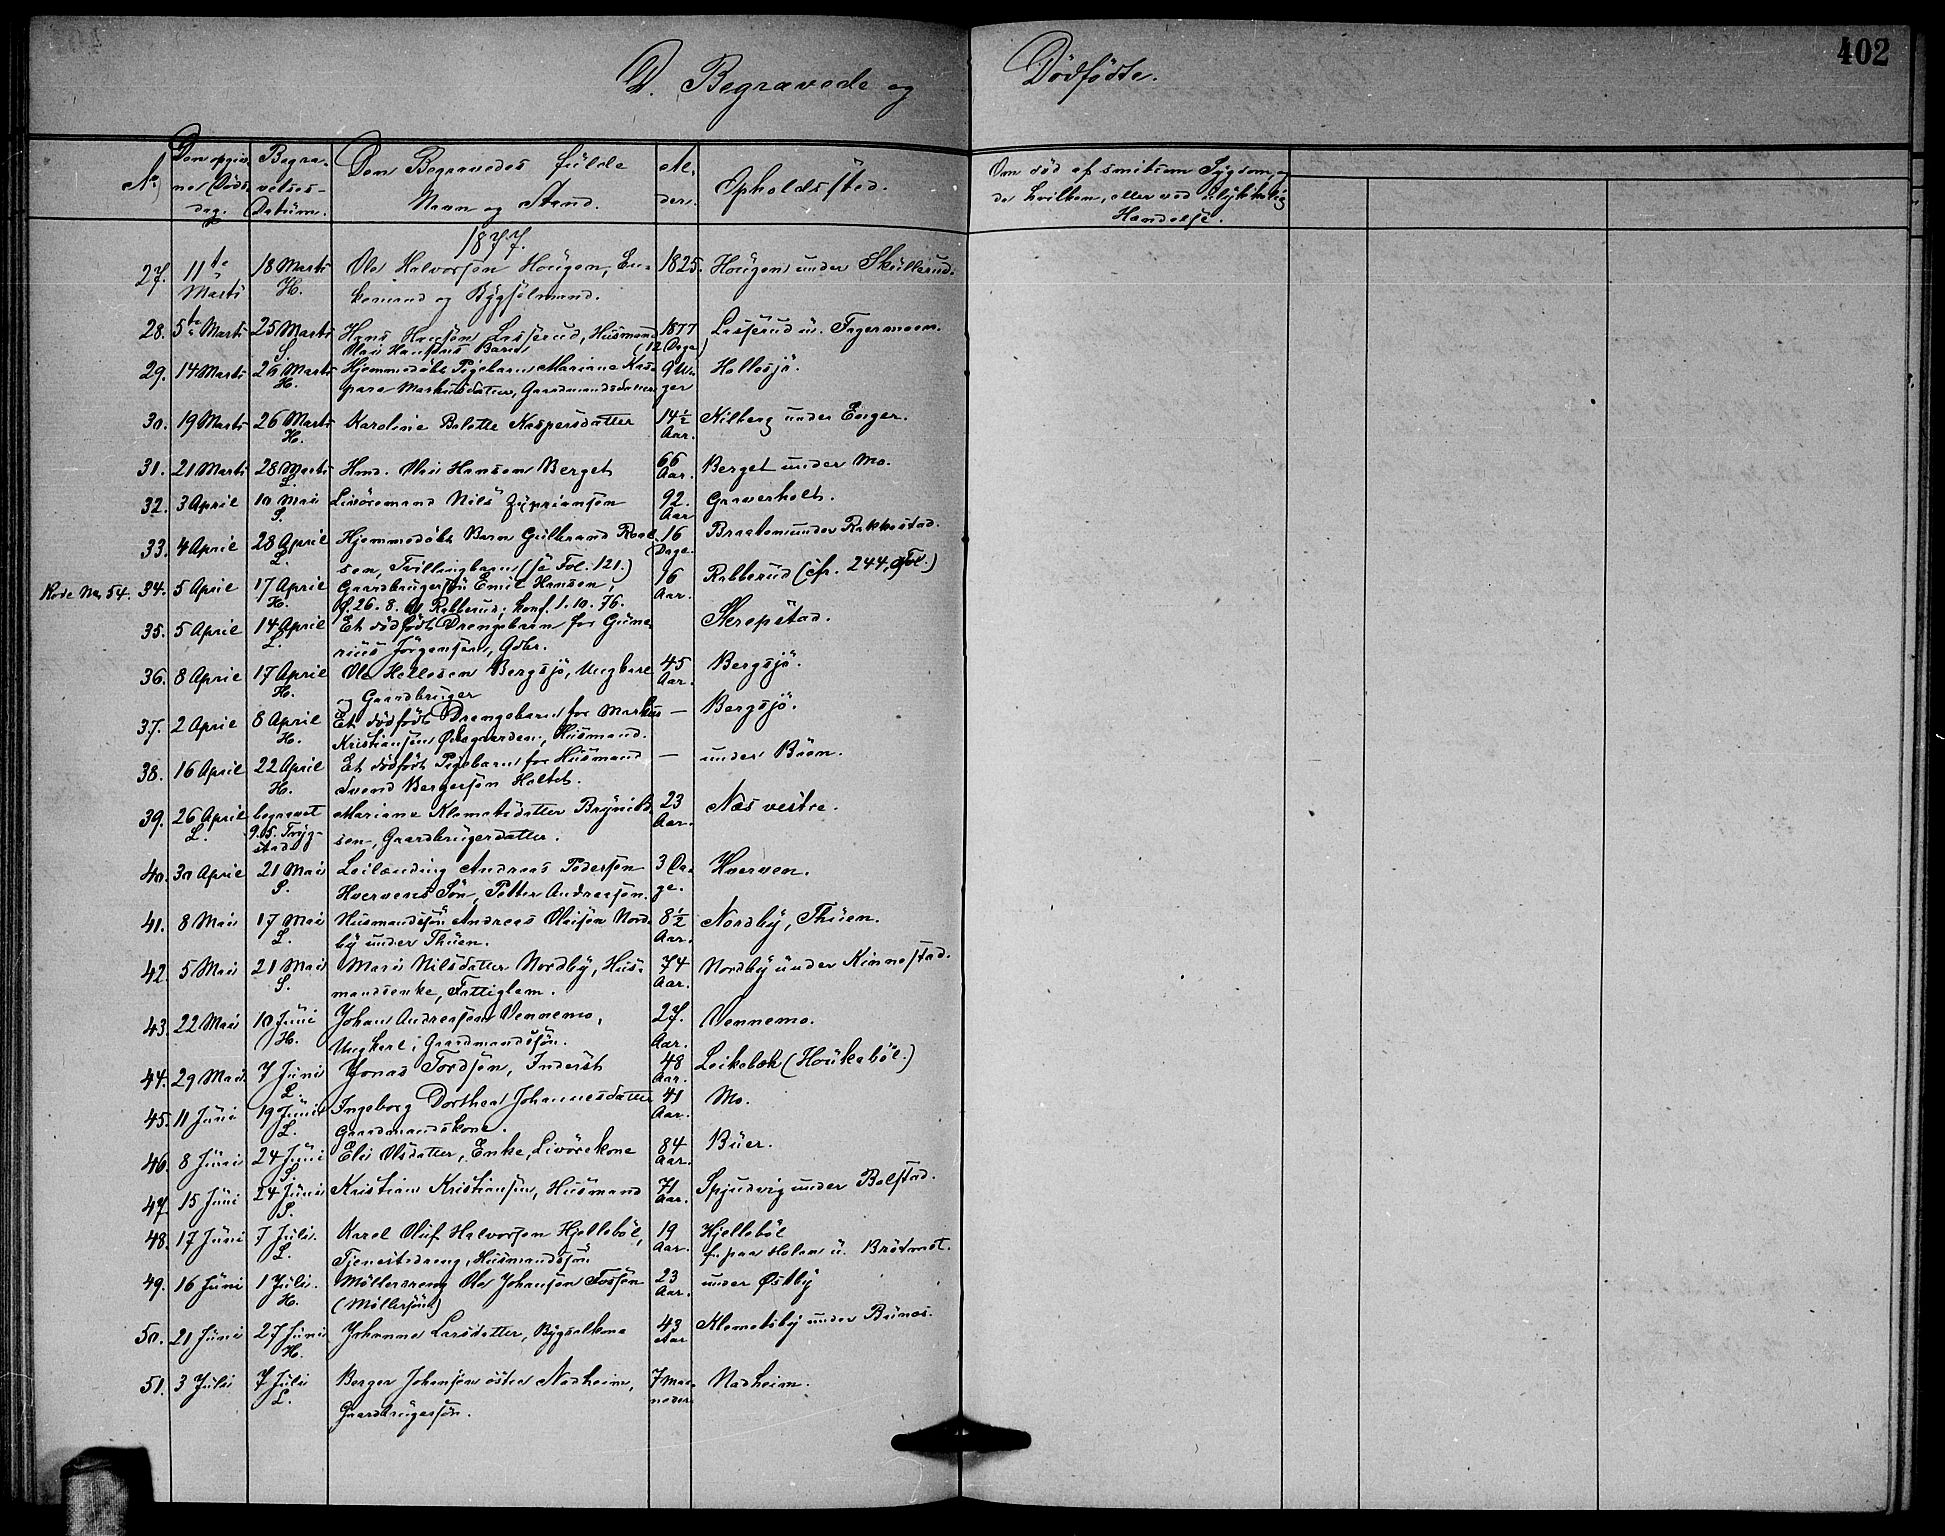 402
D. Begravede og Dödfödte.
No
Den opgivne Döds dag.
Begravelses-Datum.
Den Begravedes fulde Navn og Stand.
Alder.
Opholdssted.
Om död af smitsom Sygdom, og da hvilken, eller ved ulykkelig Hændelse.
1877.
27. 11te Marts 18 Marts H. Ole Halvorsen Haugen, Enkemand og Bygselmand. 1825. Haugen under Skullerud.
28. 5te Marts 25 Marts S. Hans Hansen Lasserud, Husmand Olai Hansens Barn 1877 (12 Dage) Lasserud u. Fagermoen.
29. 14 Marts 26 Marts H. Hjemmedöbt Pigebarn Mariane Kaspara Markusdatter, Gaardmandsdatter 9 Uger Hellesjö.
30. 19 Marts 26 Marts H. Karoline Bolette Kaspersdatter 14½ Aar. Kilberg under Enger.
31. 21 Marts 28 Marts L. Hmd. Olai Hansen Berget 66 Aar. Berget under Mo.
32. 3 April 10 Mai S. Livöremand Nils Zypriansen 92. Aar Graverholt.
33. 4 April 28 April L. Hjemmedöbt Barn Gulbrand Roalsen, Tvillingbarn (se Fol. 121.) 16 Dage. Braatom under Rakkestad.
Rode No. 54. 34. 5 April 17 April H. Gaardbrugersön Emil Hansen, f. 26. 8. 61 Rabberud; konf. 1. 10. 76. 16 Aar. Rabberud (cfr. 244, Fol.)
35. 5 April 14 April L. Et dödfödt Drengebarn for Gunerius Jörgensen, Gdbr. Skrepstad.
36. 8 April 17 April H. Ole Hellesen Bergsjö, Ungkarl og Gaardbruger 45 Aar. Bergsjö.
37. 2 April 8 April H. Et dödfödt Drengebarn for Markus Kristiansen Östegaarden, Husmand. — Bergsjö.
38. 16 April 22 April H. Et dödfödt Pigebarn for Husmand Svend Bergersen Holtet. — under Böen.
39. 26 April L. begravet 9.5. Trygstad Mariane Klemetsdatter Brynildsen, Gaardbrugerdatter. 23 Aar. Næs vestre.
40. 30 April 21 Mai S. Leilænding Andreas Pedersen Hvervens Sön, Petter Andreasen. 3 Dage. Hverven.
41. 8 Mai 17 Mai L. Husmandssön Andreas Olaisen Nordby under Thuen. 8½ Aar. Nordby, Thuen.
42. 5 Mai 21 Mai S. Mari Nilsdatter Nordby, Husmandsenke, Fattiglem. 74 Aar. Nordby under Kinnestad.
43. 22 Mai 10 Juni H. Johan Andreasen Vennemo, Ungkarl; Gaardmandssön. 27. Aar. Vennemo.
44. 29 Mai 7 Juni L. Jonas Tordsen, Inderst 48 Aar. Leikebæk (Haukaböl.)
45. 11 Juni 19 Juni L. Ingeborg Dorthea Johannesdatter Gaardmandskone. 41 Aar. Mo.
46. 8 Juni 24 Juni S. Eli Olsdatter, Enke, Livörekone 84 Aar. Buer.
47. 15 Juni 24 Juni S. Kristian Kristiansen, Husmand 71 Aar. Spjudvig under Bolstad.
48. 17 Juni 7 Juli. L. Karel Oluf Halvorsen Hjelleböl, Tjenestedreng, Husmandssön 19 Aar. Hjelleböl f. paa Holen u. Brödmot.
49. 16 Juni 1 Juli. H. Möllersvend Ole Johansen Fossen (Möllersön) 23 Aar. under Østby
50. 21 Juni 27 Juni H. Johanne Larsdatter, Bygselkone 43 Aar Klemetsby under Bunes.
51. 3 Juli 7 Juli L. Berger Johansen östre Nadheim, Gaardbrugersön. 7 Maaneder Nadheim.